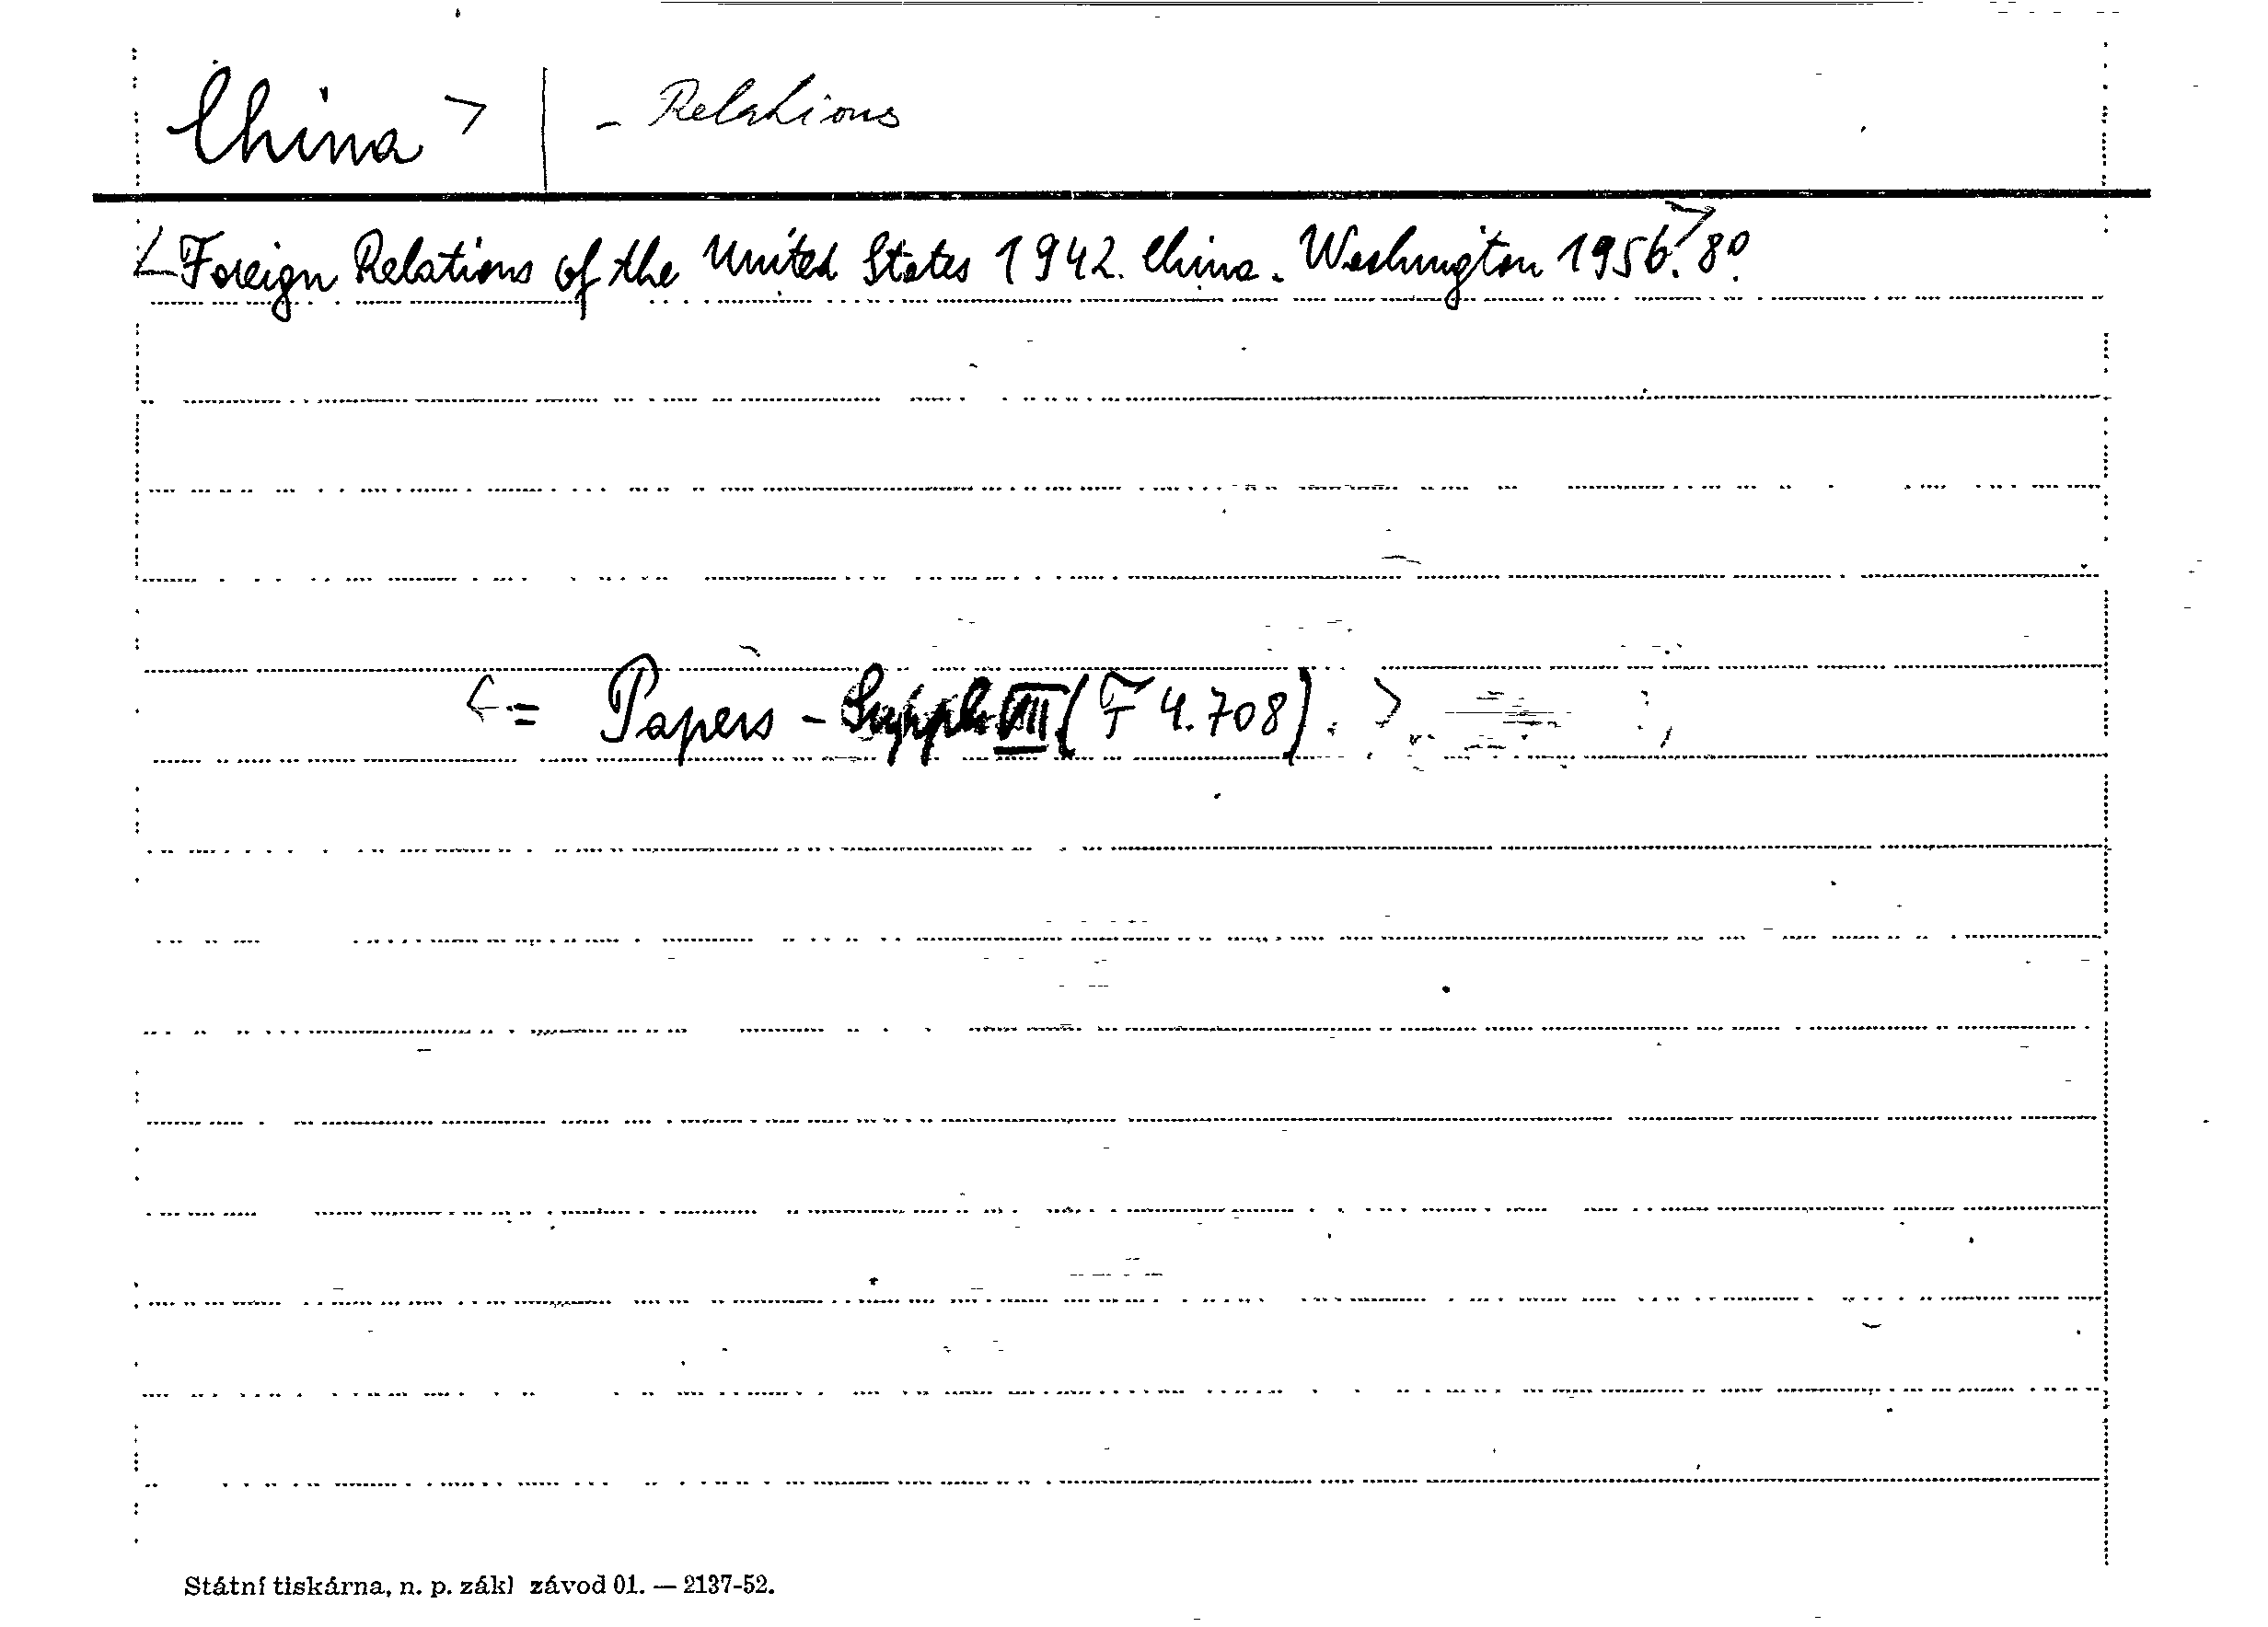 China > | - Relations
<Foreign Relations of the United States 1942. China. Washington 1956.> 8°.
<- = Papers - Suppl. VIII (F 4.708). >
Státní tiskárna, n. p. zákl závod 01. — 2137-52.